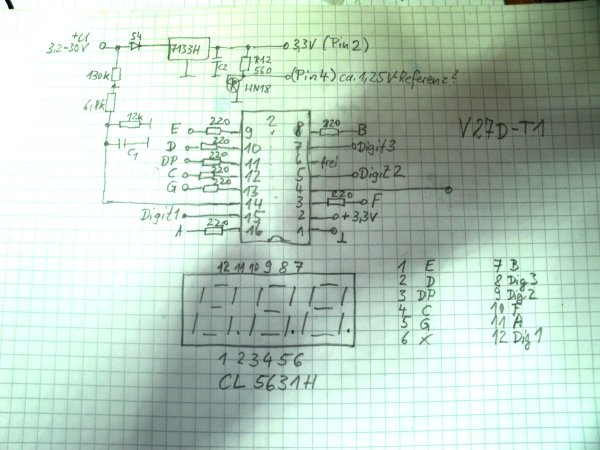 +U S4 7133H 3,3V (Pin2)
3,2-30V
C2 R12
560
130k
HN18 (Pin4) ca. 1,25V-Referenz?
6,8k
12k
C1
2
E 220 9 8 220 B
V27D-T1
D 220 10 7 Digit3
DP 220 11 6 frei
C 220 12 5 Digit2
G 220 13 4
14 3 220 F
Digit1 15 2 +3,3V
A 220 16 1
12 11 10 9 8 7
1 2 3 4 5 6
CL 5631H
1 E
2 D
3 DP
4 C
5 G
6 X
7 B
8 Dig3
9 Dig2
10 F
11 A
12 Dig1